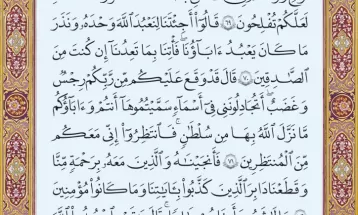 لَعَلَّكُمْ تُفْلِحُونَ ۝٦٩ قَالُوٓا۟ أَجِئْتَنَا لِنَعْبُدَ ٱللَّهَ وَحْدَهُۥ وَنَذَرَ
مَا كَانَ يَعْبُدُ ءَابَآؤُنَا فَأْتِنَا بِمَا تَعِدُنَآ إِن كُنتَ مِنَ
ٱلصَّـٰدِقِينَ ۝٧٠ قَالَ قَدْ وَقَعَ عَلَيْكُم مِّن رَّبِّكُمْ رِجْسٌ
وَغَضَبٌ أَتُجَـٰدِلُونَنِى فِىٓ أَسْمَآءٍ سَمَّيْتُمُوهَآ أَنتُمْ وَءَابَآؤُكُم
مَّا نَزَّلَ ٱللَّهُ بِهَا مِن سُلْطَـٰنٍ فَٱنتَظِرُوٓا۟ إِنِّى مَعَكُم
مِّنَ ٱلْمُنتَظِرِينَ ۝٧١ فَأَنجَيْنَـٰهُ وَٱلَّذِينَ مَعَهُۥ بِرَحْمَةٍ مِّنَّا
وَقَطَعْنَا دَابِرَ ٱلَّذِينَ كَذَّبُوا۟ بِـَٔايَـٰتِنَا وَمَا كَانُوا۟ مُؤْمِنِينَ